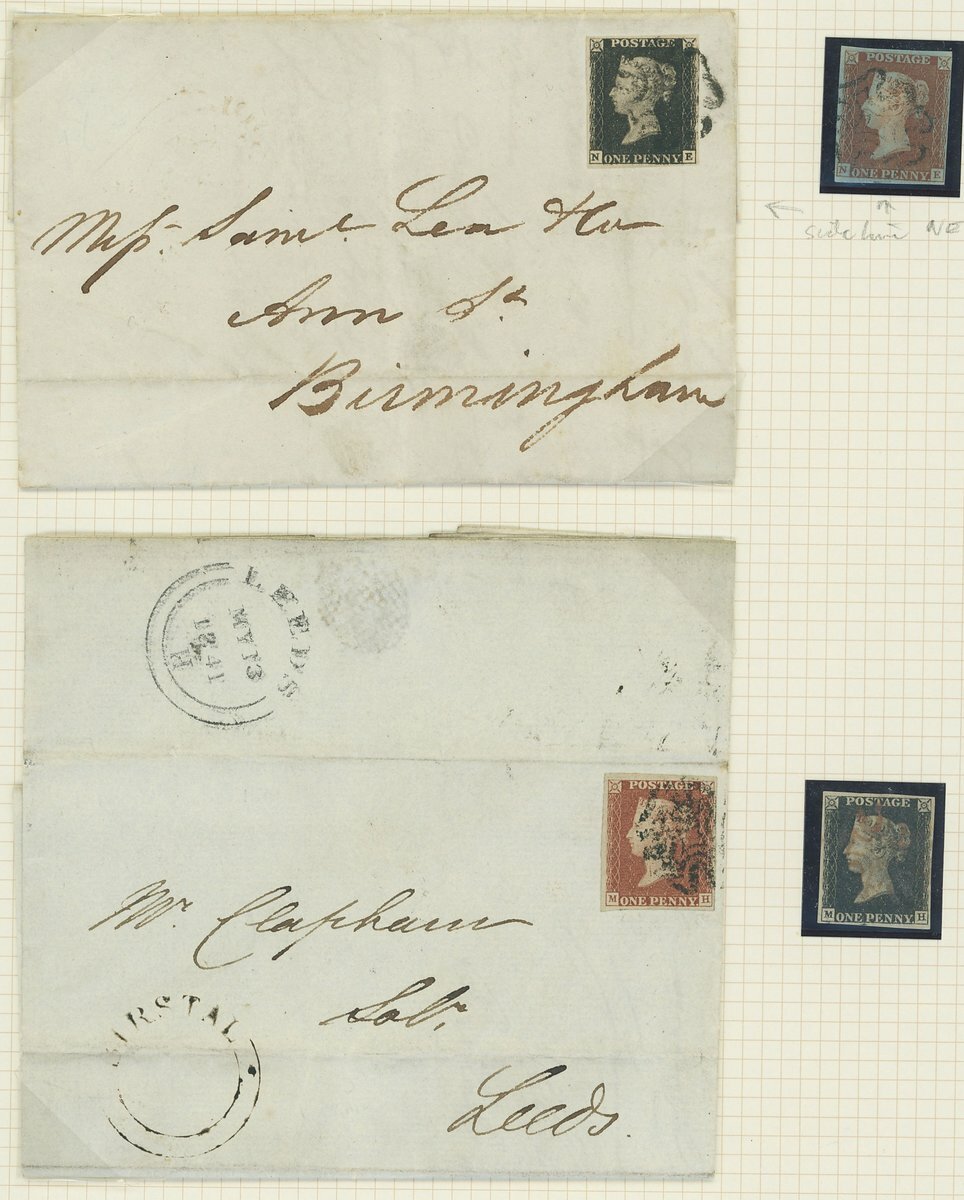 POSTAGE
N ONE PENNY E
POSTAGE
N ONE PENNY E
Messrs Saml. Lea & Co
Ann St
Birmingham
NE
LEEDS
MY 13
1841
H
POSTAGE
M ONE PENNY H
POSTAGE
M ONE PENNY H
Mr. Clapham
Solr.
BIRSTAL
Leeds.